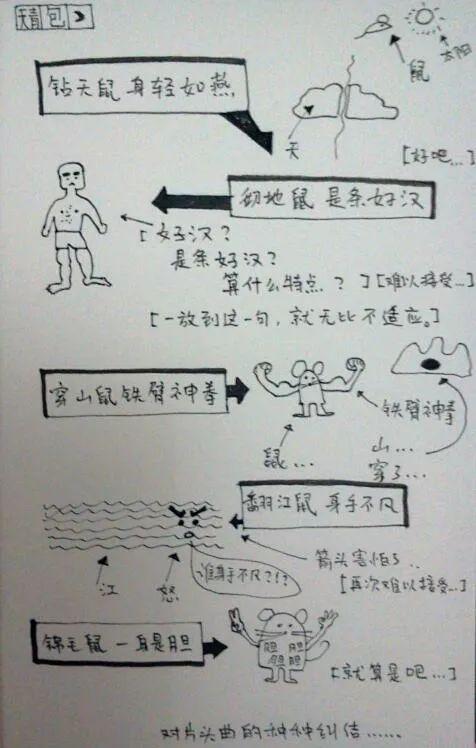 天青包
太阳
鼠
钻天鼠 身轻如燕,
天
[好吧...]
彻地鼠 是条好汉
[好汉?
是条好汉?
算什么特点?][难以接受...]
[一放到这一句,就无比不适应。]
穿山鼠铁臂神拳
铁臂神拳
鼠...
山...
穿了...
翻江鼠 身手不凡
谁身手不凡?!?
箭头害怕了..
江
怒
[再次难以接受...]
锦毛鼠 一身是胆
胆 胆
胆胆
[就算是吧...]
对片头曲的种种纠结......